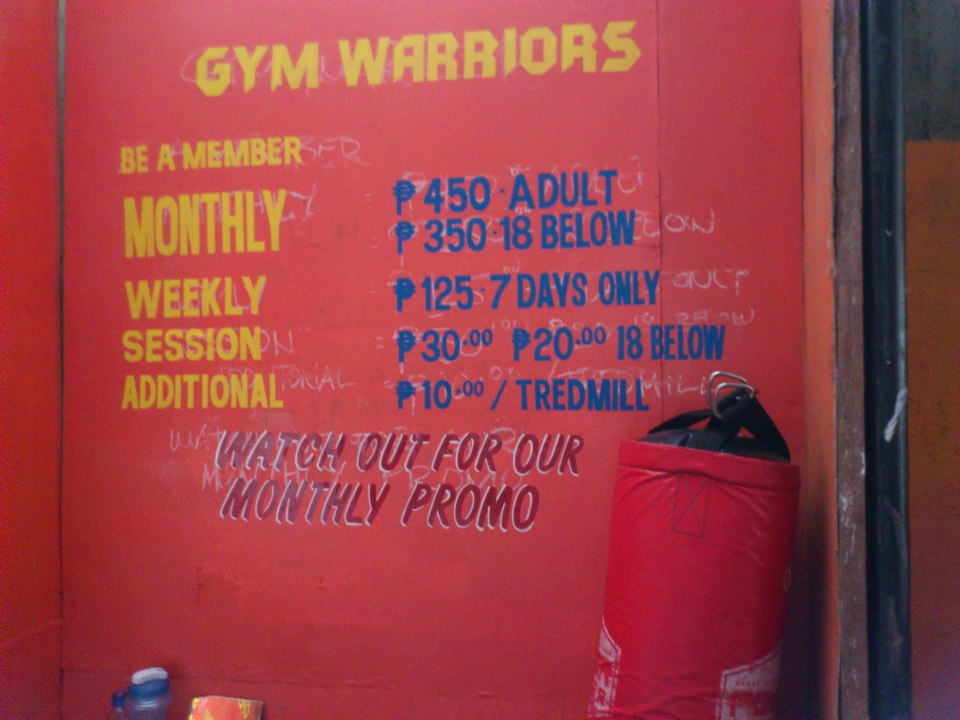 GYM WARRIORS
BE A MEMBER
MONTHLY ₱ 450 · ADULT
₱ 350 · 18 BELOW
WEEKLY ₱ 125 · 7 DAYS ONLY
SESSION ₱ 30.00 ₱ 20.00 18 BELOW
ADDITIONAL ₱ 10.00 / TREDMILL
WATCH OUT FOR OUR
MONTHLY PROMO